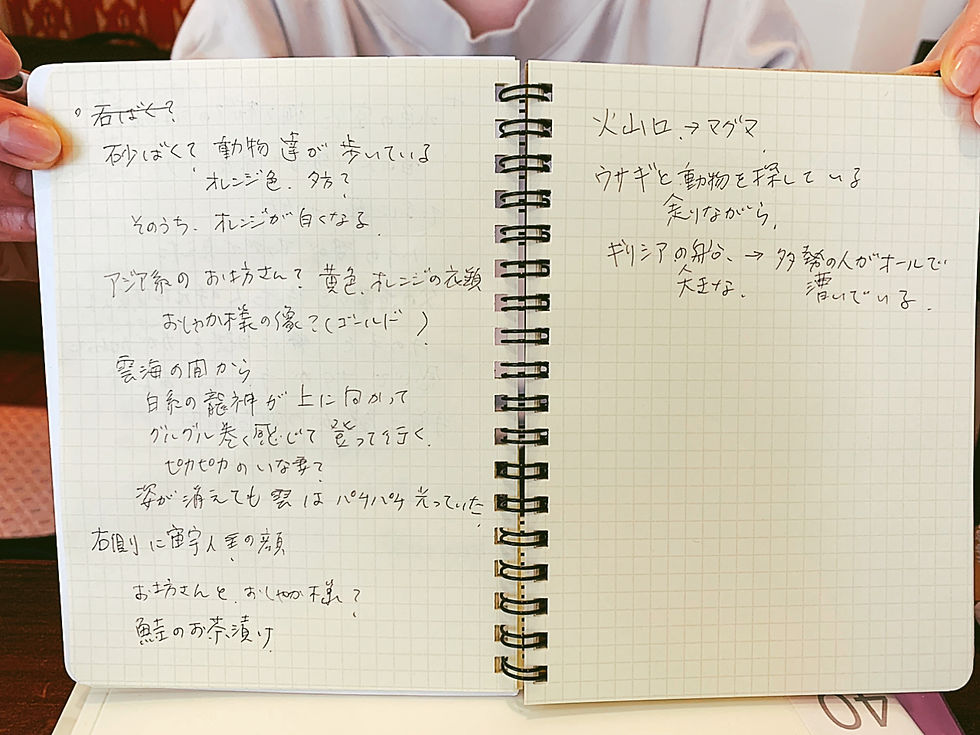 。石ばく?
砂ばくて動物達が歩いている
オレンジ色、夕方?
そのうち、オレンジが白くなる
アジア系のお坊さん? 黄色、オレンジの衣類
おしゃか様の像?(ゴールド)
雲海の間から
白系の龍神が上に向かって
グルグル巻く感じで登って行く。
ピカピカのいな妻?
姿が消えても雲はパチパチ光っていた
右側に宙宇人の顔
お坊さんと、おしゃか様?
鮭のお茶漬け
火山口→マグマ
ウサギと動物を探している
走りながら、
ギリシアの船、→多勢の人がオールで
大きな、漕いでいる。
40